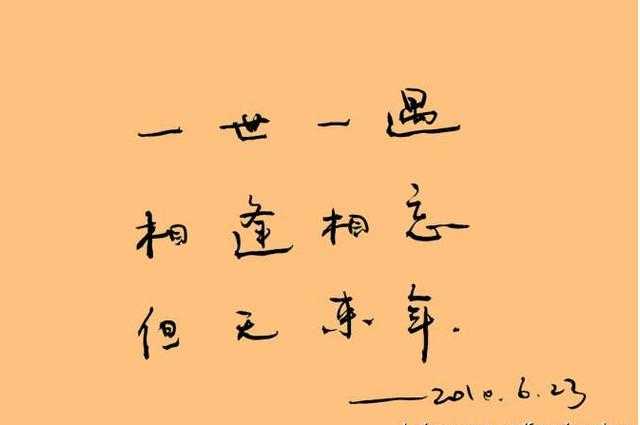 一世一遇
相逢相忘
但无来年.
——2010.6.23